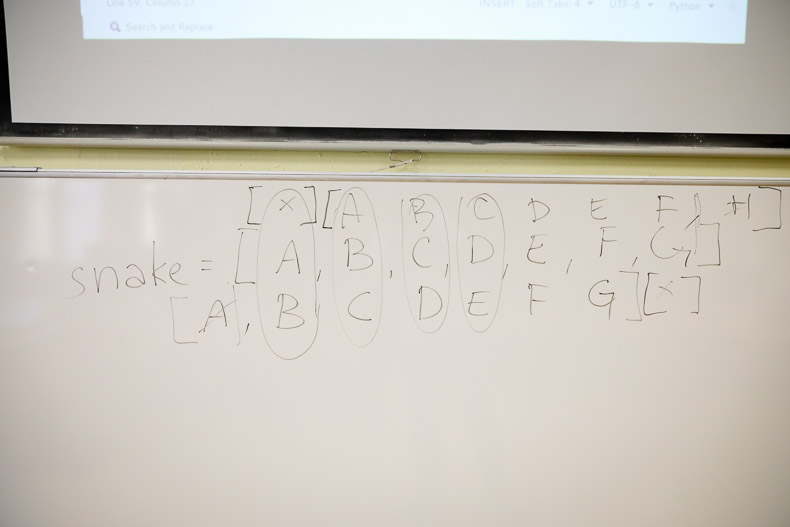 Line 59, Column 17 INSERT Soft Tabs: 4 UTF-8 Python
Search and Replace
[X][A B C D E F, H]
snake = [A, B, C, D, E, F, G]
[A, B C D E F G][X]